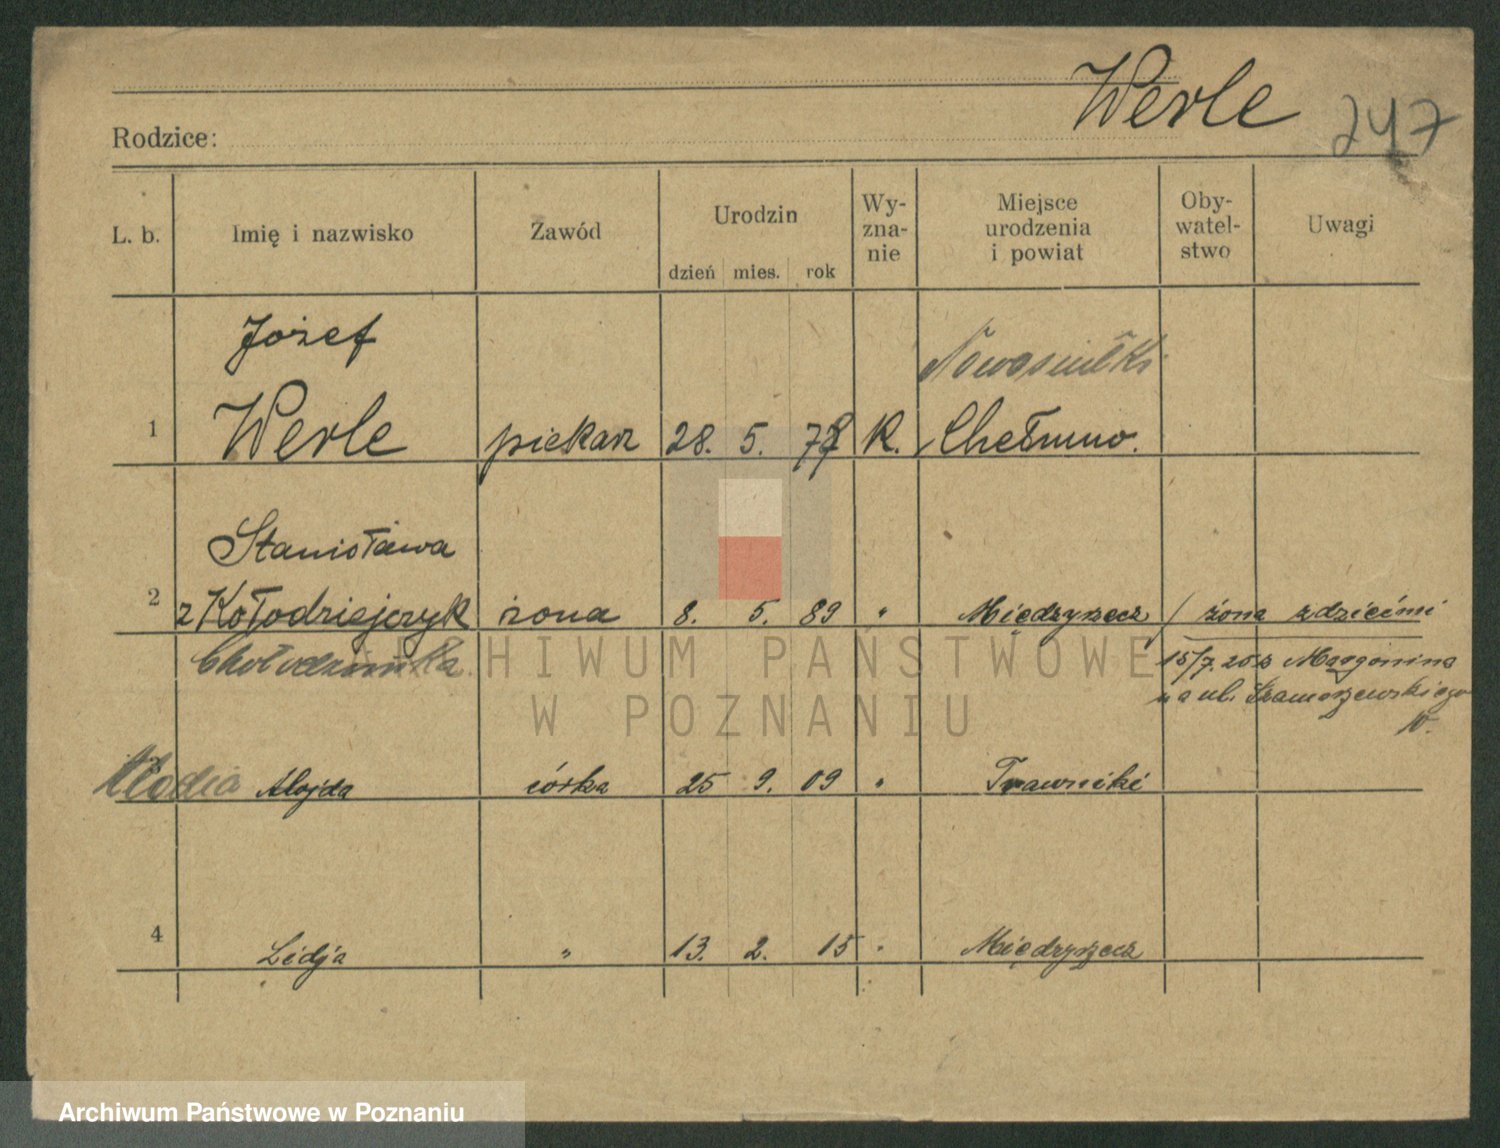 Werle
247
Rodzice:
L. b.
Imię i nazwisko
Zawód
Urodzin
dzień mies. rok
Wy-
zna-
nie
Miejsce
urodzenia
i powiat
Oby-
watel-
stwo
Uwagi
Józef
Nowosiułki
1 Werle piekarz 28. 5. 78 K. Chełmno.
Stanisława
2 z Kołodziejczyk żona 8. 5. 89 " Międzyrzecz / żona z dziećmi
15/7. 25 z Margonina
na ul. Szamarzewskiego
10.
Alojda córka 25 9. 09 " Trawniki
4 Lidja " 13. 2. 15 " Międzyrzecz
ARCHIWUM PAŃSTWOWE
W POZNANIU
Archiwum Państwowe w Poznaniu